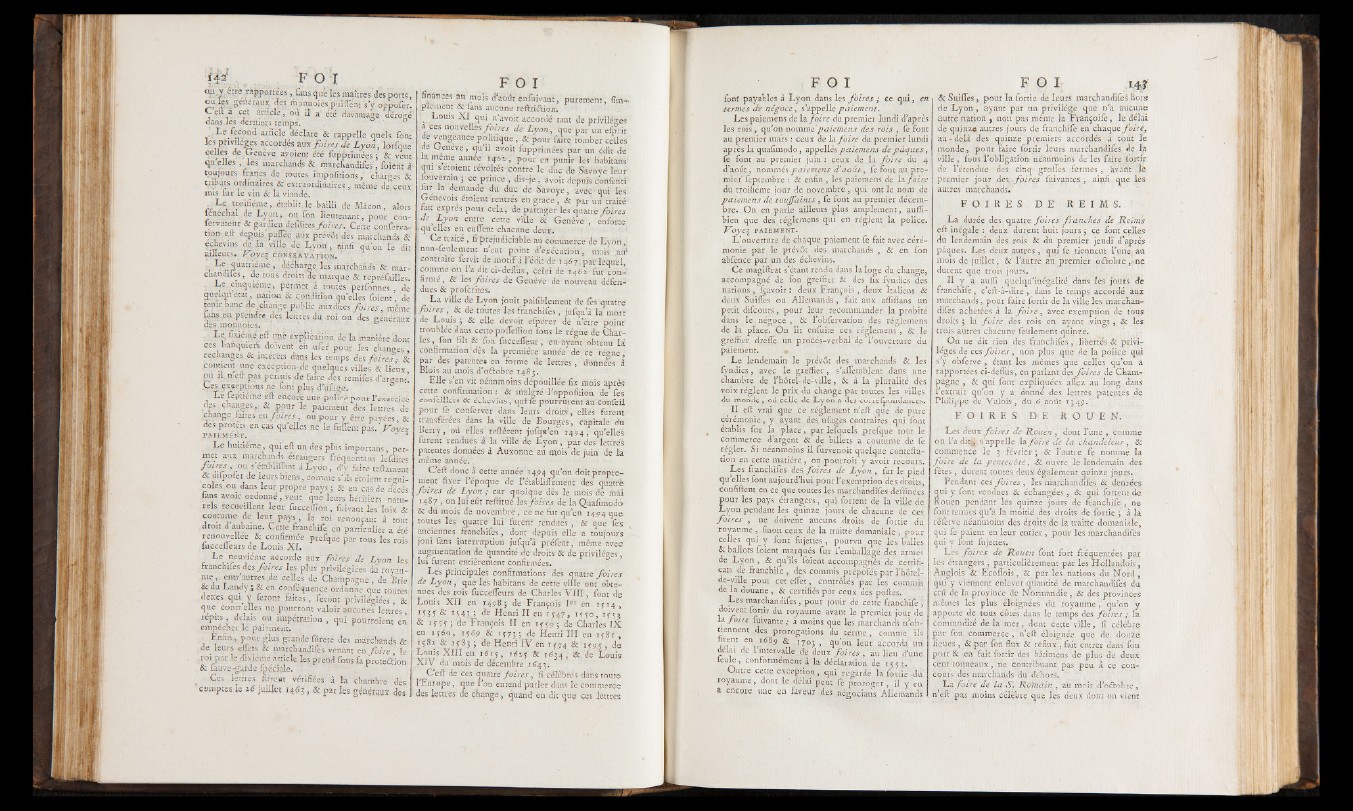 142 FOI
on y être rapportées, sans que les maîtres des ports,
ou les généraux des monnoies puissent s'y opposer.
C'est à cet article, où il a été davantage dérogé
dans les derniers temps.
Le second article déclare & rappelle quels sont
les privilèges accordés aux foires de Lyon, lorsque
celles de Genève avoient été supprimées; & veut
qu'elles, les marchands & marchandises, soient à
toujours francs de toutes impositions, charges &
tributs ordinaires & extraordinaires, même de ceux
mis sur le vin & la viande.
Le troisième, établit le bailli de Mâcon, alors
sénéchal de Lyon, ou son lieutenant, pour con-
servateur & gardien desdites foires. Cette conserva-
tion est depuis passée aux prévôt des marchands &
échevins de la ville de Lyon, ainsi qu'on le dit
ailleurs. Voyez CONSERVATION.
Le quatrième, décharge les marchands & mar-
chandises, de tous droits de marque & représailles.
Le cinquième, permet à toutes personnes, de
quelqu'état, nation & condition qu'elles soient, de
tenir banc de change public auxdites foires, même
sans en prendre des lettres du roi ou des généraux
des monnoies.
Le sixième est une explication de la manière dont
ces banquiers doivent en user pour les changes,
rechanges & intérêts dans les temps des foires; &
contient une exception de quelques villes & lieux,
où il n'est pas permis de faire des remises d'argent.
Ces exceptions ne sont plus d'usage.
Le septième est encore une police pour l'exercice
des changes, & pour le paiement des lettres de
change faites en foires, ou pour y être payées, &
des protêts en cas qu'elles ne le fussent pas. Voyez
PAIEMENT.
Le huitième, qui est un des plus importans, per-
met aux marchands étrangers fréquentans lesdites
foires, ou s'établissant à Lyon, d'y faire testament
& disposer de leurs biens, comme s'ils étoient regni-
coles ou dans leur propre pays; & en cas de décès
sans avoir ordonné, veut que leurs héritiers natu-
rels recueillent leur succession, suivant les loix &
coutume de leur pays, le roi renonçant à tout
droit d'aubaine. Cette franchise en particulier a été
renouvellée & confirmée presque par tous les rois
successeurs de Louis XI.
Le neuvième accorde aux foires de Lyon les
franchises des foires les plus privilégiées du royau-
me, entr'autres de celles de Champagne, de Brie
& du Landy; & en conséquence ordonne que toutes
dettes qui y seront faites, seront privilégiées, &
que contr'elles ne pourront valoir aucunes lettres,
répits, délais ou impétration, qui pourroient en
empêcher le paiement.
Enfin, pour plus grande sûreté des marchands &
de leurs effets & marchandises venant en foire, le
roi par le dixième article les prend sous sa protection
& sauve-garde spéciale.
Ces lettres furent vérifiées à la chambre des
comptes le 26 juillet 1463, & par les généraux des
FOI
finances au mois d'août ensuivant, purement, sim-
plement & sans aucune restriction.
Louis XI qui n'avoit accordé tant de privilèges
à ces nouvelles foires de Lyon, que par un esprit
de vengeance politique, & pour faire tomber celles
de Genève, qu'il avoit supprimées par un édit de
la même année 1462, pour en punir les habitans
qui s'étoient révoltés contre le duc de Savoye leur
souverain; ce prince, dis-je, avoit depuis consenti
sur la demande du duc de Savoye, avec qui les
Génevois étoient rentrés en grace, & par un traité
fait exprès pour cela, de partager les quatre foires
de Lyon entre cette ville & Genève, ensorte
qu'elles en eussent chacune deux.
Ce traité, si préjudiciable au commerce de Lyon,
non-seulement n'eut point d'exécution, mais au
contraire servit de motif à l'édit de 1467, par lequel,
comme on l'a dit ci-dessus, celui de 1462 fut con-
firmé, & les foires de Genève de nouveau défen-
dues & proscrites.
La ville de Lyon jouit paisiblement de ses quatre
foires, & de toutes les franchises, jusqu'à la mort
de Louis; & elle devoit espérer de n'être point
troublée dans cette possession sous le règne de Char-
les, son fils & son successeur, en ayant obtenu la
confirmation dès la première année de ce règne,
par des patentes en forme de lettres, données à
Blois au mois d'octobre 1483.
Elle s'en vit néanmoins dépouillée six mois après
cette confirmation: & malgré l'opposition de ses
conseillers & échevins, qui se pourvurent au conseil
pour se conserver dans leurs droits, elles furent
transférées dans la ville de Bourges, capitale du
Berry, où elles restèrent jusqu'en 1494, qu'elles
furent rendues à la ville de Lyon, par des lettres
patentes données à Auxonne au mois de juin de la
même année.
C'est donc à cette année 1494 qu'on doit propre-
ment fixer l'époque de l'établissement des quatre
foires de Lyon; car quoique dès le mois de mai
1487, on lui eût restitué les foires de la Quasimodo
& du mois de novembre, ce ne fut qu'en 1494 que
toutes les quatre lui furent rendues, & que ses
anciennes franchises, dont depuis elle a toujours
joui sans interruption jusqu'à présent, même avec
augmentation de quantité de droits & de privilèges,
lui furent entièrement confirmées.
Les principales confirmations des quatre foires
de Lyon, que les habitans de cette ville ont obte-
nues des rois successeurs de Charles VIII, sont de
Louis XII en 1498; de François Ier en 1514,
1535 & 1543; de Henri II en 1547, 1550, 1553
& 1555; de François II en 1559; de Charles IX
en 1560, 1569 & 1573; de Henri III en 1581,
1582 & 1583; de Henri IV en 1594 & 1595, de
Louis XIII en 1615, 1625 & 1634, & de Louis
XIV du mois de décembre 1643.
C'est de ces quatre foires, si célèbres dans toute
l'Europe, que l'on entend parler dans le commerce
des lettres de change, quand on dit que ces lettres
FOI
sont payables à Lyon dans les foires; ce qui, en
termes de négoce, s'appelle paiement.
Les paiemens de la foire du premier lundi d'après
les rois, qu'on nomme paiemens des rois, se font
au premier mars: ceux de la foire du premier lundi
après la quasimodo, appellés paiemens de pâques,
se font au premier juin: ceux de la foire du 4
d'août, nommés paiemens d'août, se font au pre-
mier septembre: & enfin, les paiemens de la foire
du troisième jour de novembre, qui ont le nom de
paiemens de toussaints, se font au premier décem-
bre. On en parle ailleurs plus amplement, aussi-
bien que des réglemens qui en règlent la police.
Voyez PAIEMENT.
L'ouverture de chaque paiement se fait avec céré-
monie par le prévôt des marchands, & en son
absence par un des échevins.
Ce magistrat s'étant rendu dans la loge du change,
accompagné de son greffier & des six syndics des
nations, sçavoir: deux François, deux Italiens &
deux Suisses ou Allemands, fait aux assistans un
petit discours, pour leur recommander la probité
dans le négoce, & l'observation des réglemens
de la place. On lit ensuite ces réglemens, & le
greffier dresse un procès-verbal de l'ouverture du
paiement.
Le lendemain le prévôt des marchands & les
syndics, avec le greffier, s'assemblent dans une
chambre de l'hôtel-de-ville, & à la pluralité des
voix règlent le prix du change par toutes les villes
du monde, où celle de Lyon a des correspondances.
Il est vrai que ce réglement n'est que de pure
cérémonie, y ayant des usages contraires qui sont
établis sur la place, par lesquels presque tout le
commerce d'argent & de billets a coutume de se
régler. Si néanmoins il survenoit quelque contesta-
tion en cette matière, on pourroit y avoir recours.
Les franchises des foires de Lyon, sur le pied
qu'elles sont aujourd'hui pour l'exemption des droits,
consistent en ce que toutes les marchandises destinées
pour les pays étrangers, qui sortent de la ville de
Lyon pendant les quinze jours de chacune de ces
foires, ne doivent aucuns droits de sortie du
royaume, sinon ceux de la traitte domaniale, pour
celles qui y sont sujettes, pourvu que les balles
& ballots soient marqués sur l'emballage des armes
de Lyon, & qu'ils soient accompagnés de certifi-
cats de franchise, des commis préposés par l'hôtel-
de-ville pour cet effet, contrôlés par les commis
de la douane, & certifiés par ceux des postes.
Les marchandises, pour jouir de cette franchise,
doivent sortir du royaume avant le premier jour de
la foire suivante; à moins que les marchands n'ob-
tiennent des prorogations du terme, comme ils
firent en 1689 & 1703, qu'on leur accorda un
délai de l'intervalle de deux foires, au lieu d'une
seule, conformément à la déclaration de 1553.
Outre cette exception, qui regarde la sortie du
royaume, dont le délai peut se proroger, il y en
a encore une en faveur des négocians Allemands
FOI 143
& Suisses, pour la sortie de leurs marchandises hors
de Lyon, ayant par un privilège que n'a aucune
autre nation, non pas même la Françoise, le délai
de quinze autres jours de franchise en chaque foire,
au-delà des quinze premiers accordés à tout le
monde, pour faire sortir leurs marchandises de la
ville, sous l'obligation néanmoins de les faire sortir
de l'étendue des cinq grosses fermes, avant le
premier jour des foires suivantes, ainsi que les
autres marchands.
FOIRES DE REIMS.
La durée des quatre foires franches de Reims
est inégale: deux durent huit jours; ce sont celles
du lendemain des rois & du premier jeudi d'après
pâques. Les deux autres, qui se tiennent l'une au
mois de juillet, & l'autre au premier octobre, ne
durent que trois jours.
Il y a aussi quelqu'inégalité dans les jours de
franchise, c'est-à-dire, dans le temps accordé aux
marchands, pour faire sortir de la ville les marchan-
dises achetées à la foire, avec exemption de tous
droits; la foire des rois en ayant vingt, & les
trois autres chacune seulement quinze.
On ne dit rien des franchises, libertés & privi-
lèges de ces foires, non plus que de la police qui
s'y observe, étant les mêmes que celles qu'on a
rapportées ci-dessus, en parlant des foires de Cham-
pagne, & qui sont expliquées assez au long dans
l'extrait qu'on y a donné des lettres patentes de
Philippe de Valois, du 6 août 1349.
FOIRES DE ROUEN.
Les deux foires de Rouen, dont l'une, comme
on l'a dit, s'appelle la foire de la chandeleur, &
commence le 3 février; & l'autre se nomme la
foire de la pentecôte, & ouvre le lendemain des
fêtes, durent toutes deux également quinze jours.
Pendant ces foires, les marchandises & denrées
qui y sont vendues & échangées, & qui sortent de
Rouen pendant les quinze jours de franchise, ne
sont tenues qu'à la moitié des droits de sortie; à la
réserve néanmoins des droits de la traitte domaniale,
qui se paient en leur entier, pour les marchandises
qui y sont sujettes.
Les foires de Rouen sont fort fréquentées par
les étrangers, particulièrement par les Hollandois,
Anglois & Ecossois, & par les nations du Nord,
qui y viennent enlever quantité de marchandises du
crû de la province de Normandie, & des provinces
mêmes les plus éloignées du royaume, qu'on y
apporte de tous côtés dans le temps des foires; la
commodité de la mer, dont cette ville, si célèbre
par son commerce, n'est éloignée que de douze
lieues, & par son flux & reflux, fait entrer dans son
port & en fait sortir des bâtimens de plus de deux
cent tonneaux, ne contribuant pas peu à ce con-
cours des marchands du dehors.
La foire de la S. Romain, au mois d'octobre,
n'est pas moins célèbre que les deux dont on vient